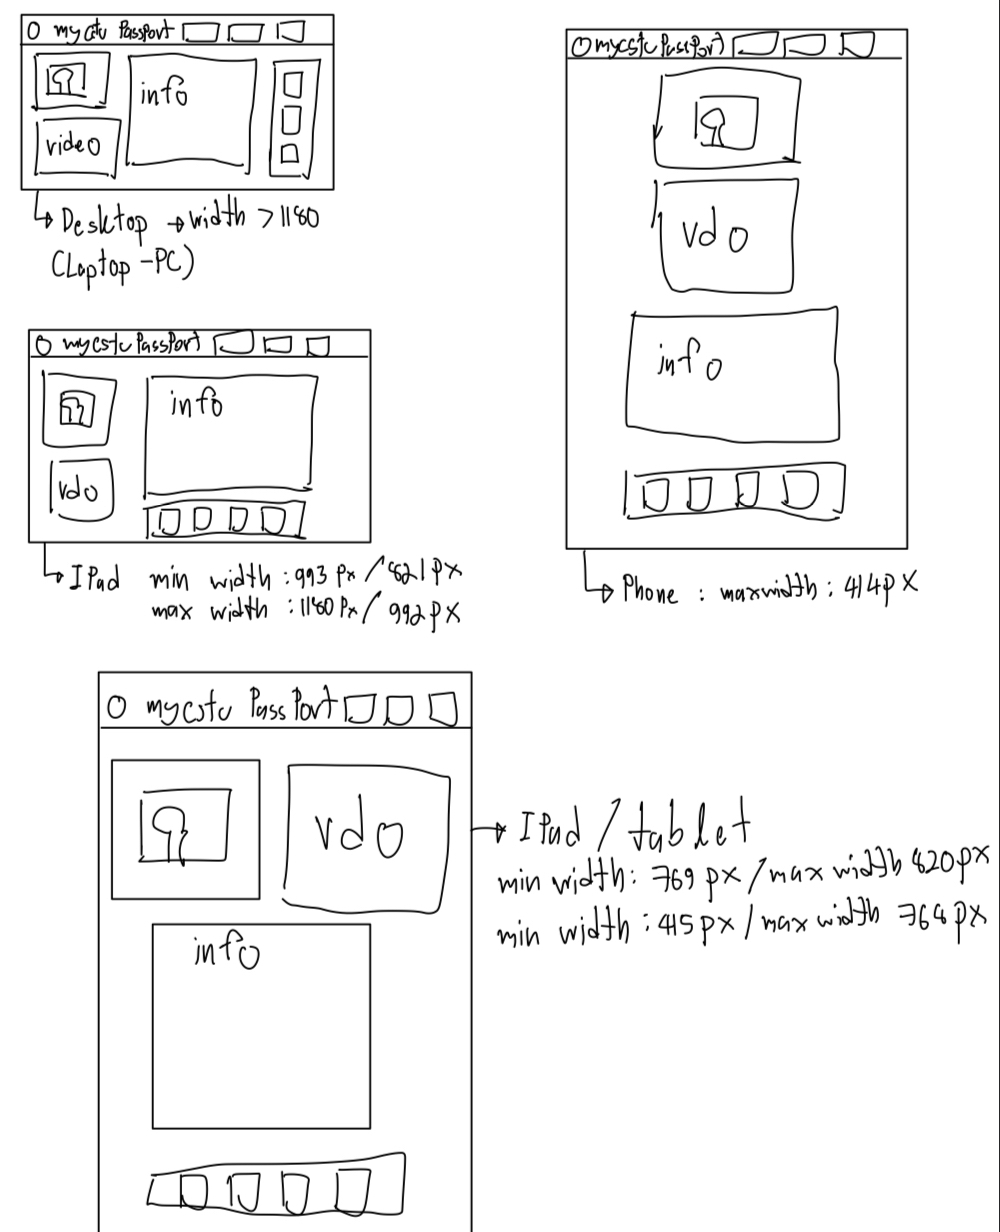 mycstu PassPort
info
video
Desktop → width > 1180
(Laptop - PC)
mycstu PassPort
info
vdo
IPad min width : 993 px / 821 px
max width : 1180 px / 992 px
mycstu PassPort
vdo
info
Phone : maxwidth : 414 px
mycstu PassPort
vdo
info
IPad / tablet
min width : 769 px / max width 820 px
min width : 415 px / max width 768 px